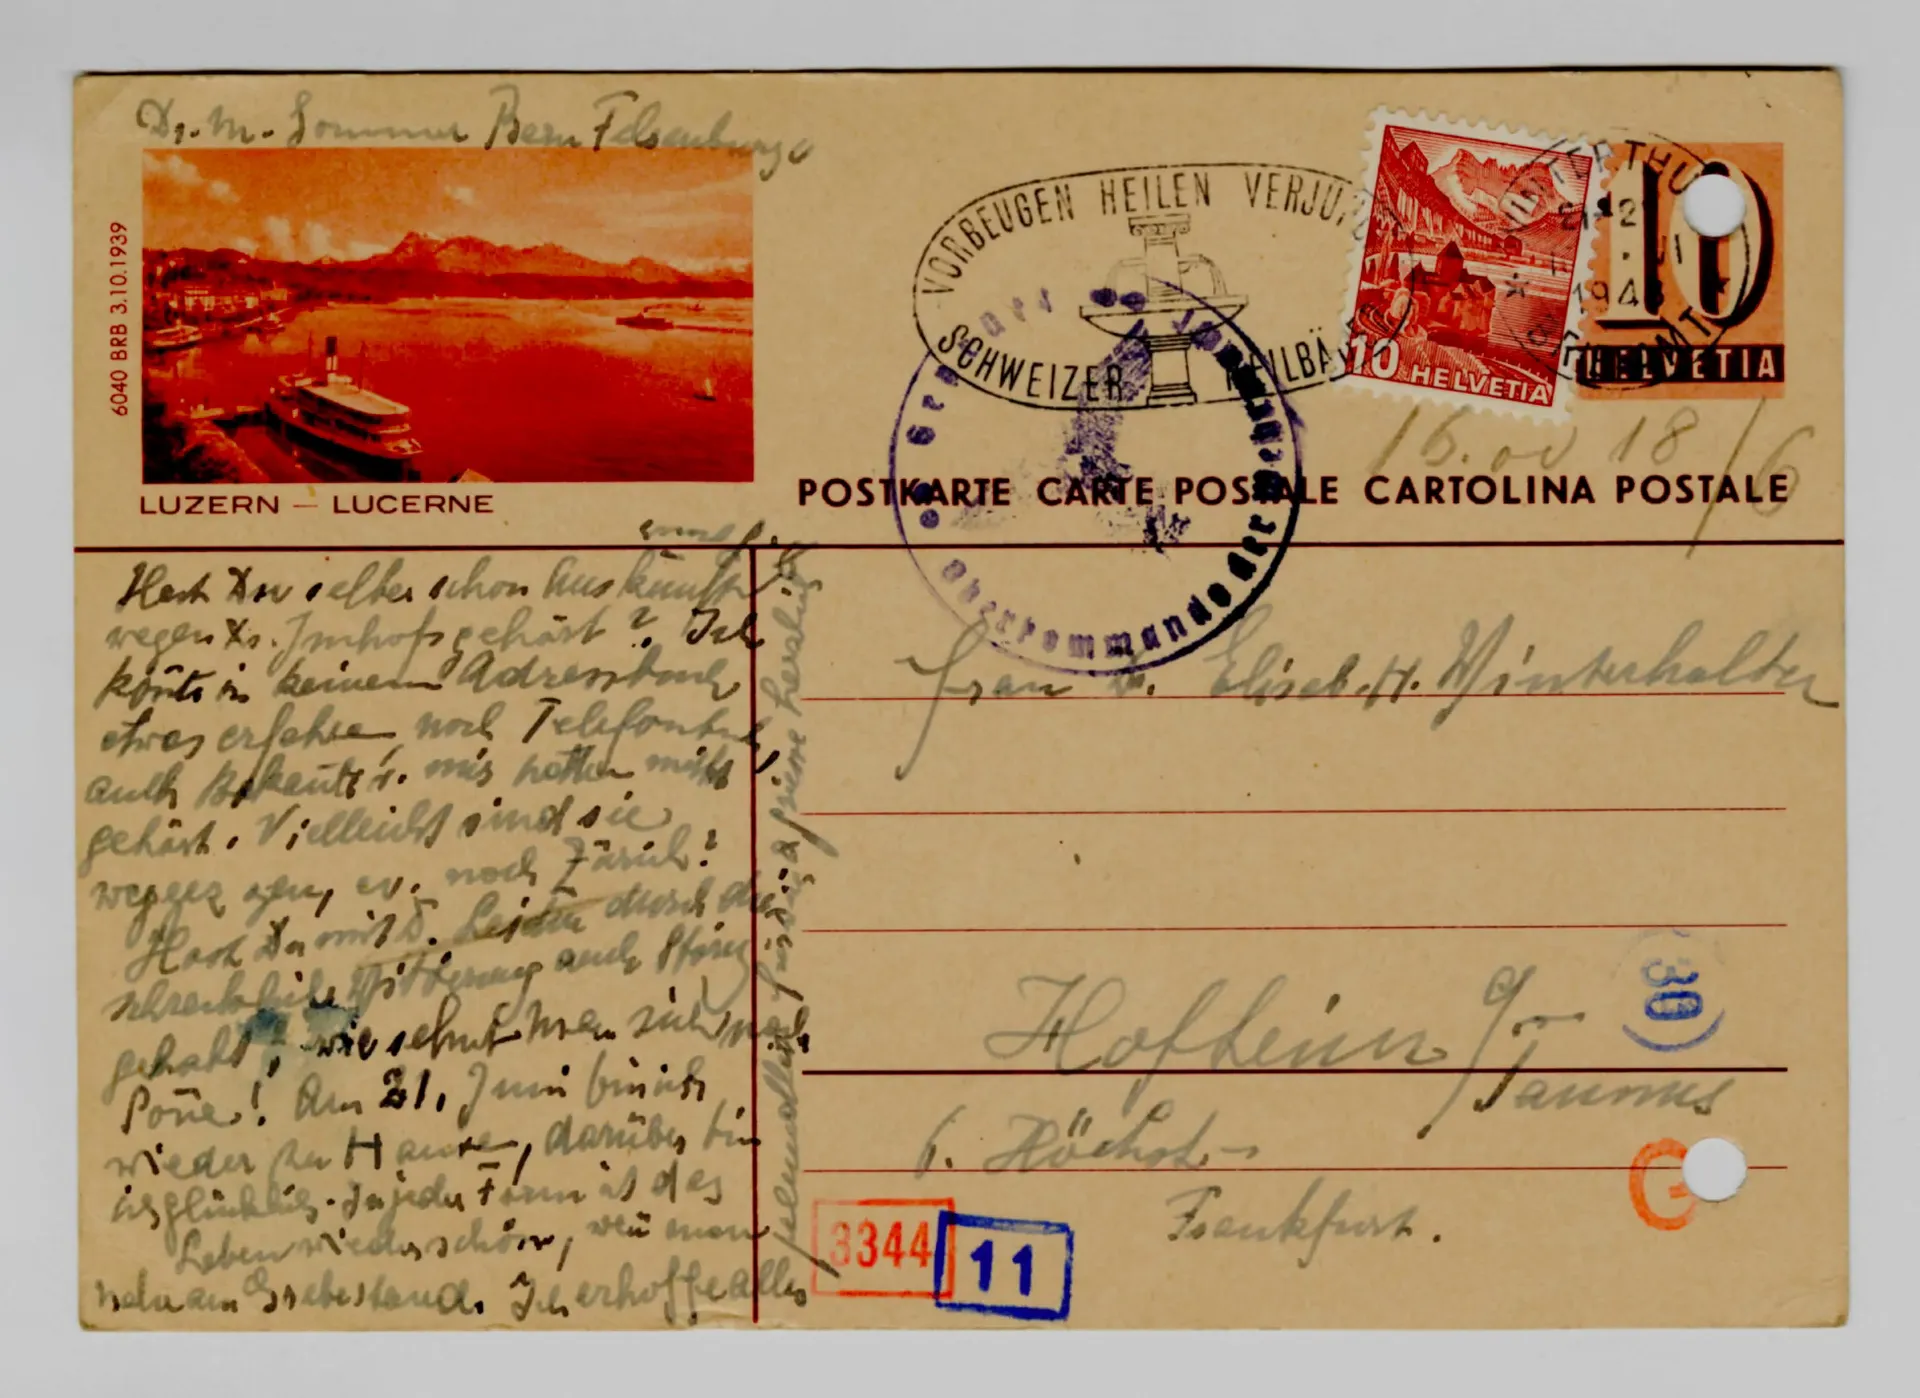 Dr. M. Sommer Bern Felsenburg
6040 BRB 3.10.1939
LUZERN – LUCERNE
VORBEUGEN HEILEN VERJÜ
SCHWEIZER HEILBÄ
WINTERTHU
21-2
VI
194
10 HELVETIA
10
HELVETIA
18/6
POSTKARTE CARTE POSTALE CARTOLINA POSTALE
Oberkommando der Wehrm
Hast Du selber schon Auskunft
wegen Dr. Imhofs gehört? Ich
kon̄te in keinem Adressbuch
etwas erfahren noch Telefonbuch,
auch Bekan̄te v. mir hatten nichts
gehört. Vielleicht sind sie
weggezogen, ev. nach Zürich?
Hast Du mit d. Leiden durch die
schreckliche Witterung auch
gehabt, wie sehnt man sich nach
Son̄e! Am 21. Juni bin ich
wieder zu Hause, darüber bin
ich glücklich. In jeder Form ist das
Leben wieder schön, wen̄ man
Ich erhoffe alles
Frau Elisab. H. Winterhalter
Hofheim a/Taunus
b. Höchst –
Frankfurt.
30
3344
11